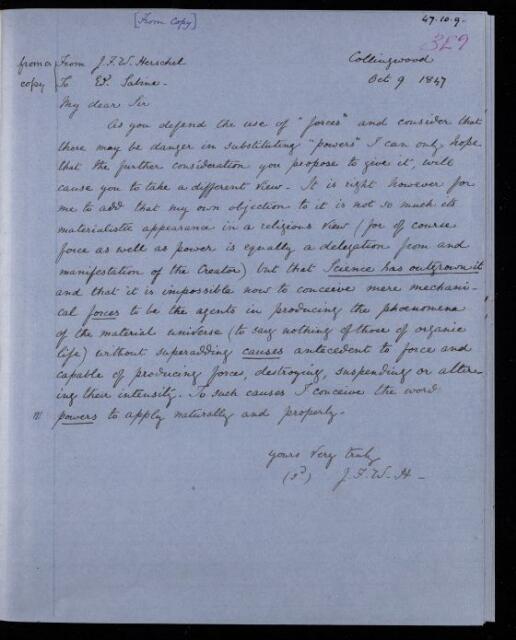 [From Copy]
47.10.9.
359
from a
copy
From J.F.W. Herschel
Collingwood
To Ed. Sabine.
Oct 9 1847
My dear Sir
As you defend the use of "forces" and consider that
there may be danger in substituting "powers" I can only hope
that the further consideration you propose to give it, will
cause you to take a different view. It is right however for
me to add that my own objection to it is not so much its
materialistic appearance in a religious view (for of course
force as well as power is equally a delegation from and
manifestation of the Creator) but that Science has outgrown it
and that it is impossible now to conceive mere mechani-
cal forces to be the agents in producing the phœnomena
of the material universe (to say nothing of those of organic
life) without superadding causes antecedent to force and
capable of producing force, destroying, suspending or alter-
ing their intensity. To such causes I conceive the word
powers to apply naturally and properly.
yours very truly
(sd) J.F.W.H-